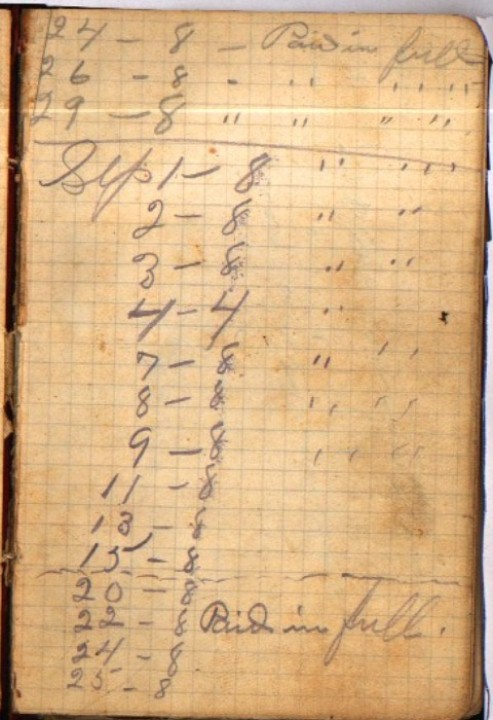 24 - 8 - Paid in full
26 - 8 - " " "
29 - 8 " " " "
Sep 1 - 8 " "
2 - 8 " "
3 - 8 " "
4 - 4 "
7 - 8 " "
8 - 8 " "
9 - 8 " "
11 - 8
13 - 8
15 - 8
20 - 8
22 - 8 Paid in full.
24 - 8
25 - 8